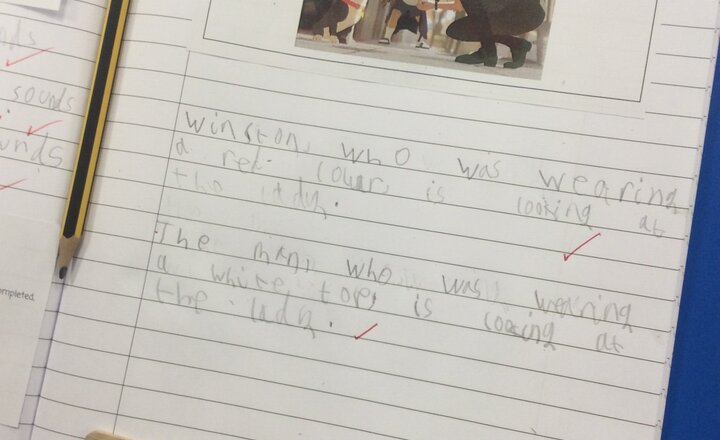 sounds
unds
ompleted.
Winston, who was wearing
a red coller, is looking at
the lady.
The man, who was wearing
a white top, is looking at
the lady.